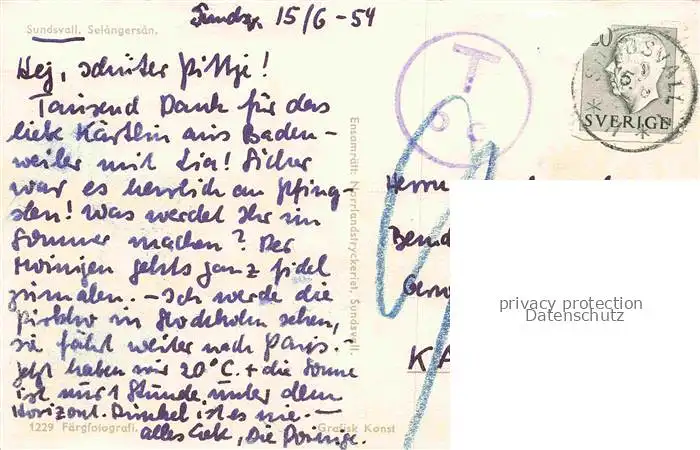 Sundsvall. Selångersån.
15/6 - 54
Hej,
Tausend Dank für das
liebe Kärtlein aus Baden-
weiler mit Lia! Sicher
war es herrlich an Pfing-
sten! Was werdet Ihr im
Sommer machen? Der
gehts ganz fidel
zumalen. - Ich werde die
in Stockholm sehen,
sie fährt weiter nach Paris. -
Jetzt haben wir 20°C. + die Sonne
ist nur 1 Stunde unter dem
Horizont. Dunkel ist es nie. -
alles Liebe, Die
1229 Färgfotografi.
Grafisk Konst
Ensamrätt: Norrlandstryckeriet, Sundsvall.
T
SUNDSVALL
SVERIGE
Herrn
privacy protection
Datenschutz